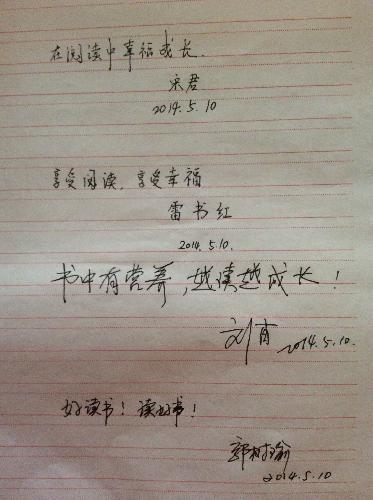 在阅读中幸福成长.
宋君
2014.5.10
享受阅读, 享受幸福
雷书红
2014.5.10.
书中有营养,越读越成长!
刘肖 2014.5.10.
好读书! 读好书!
郭树瑜
2014.5.10